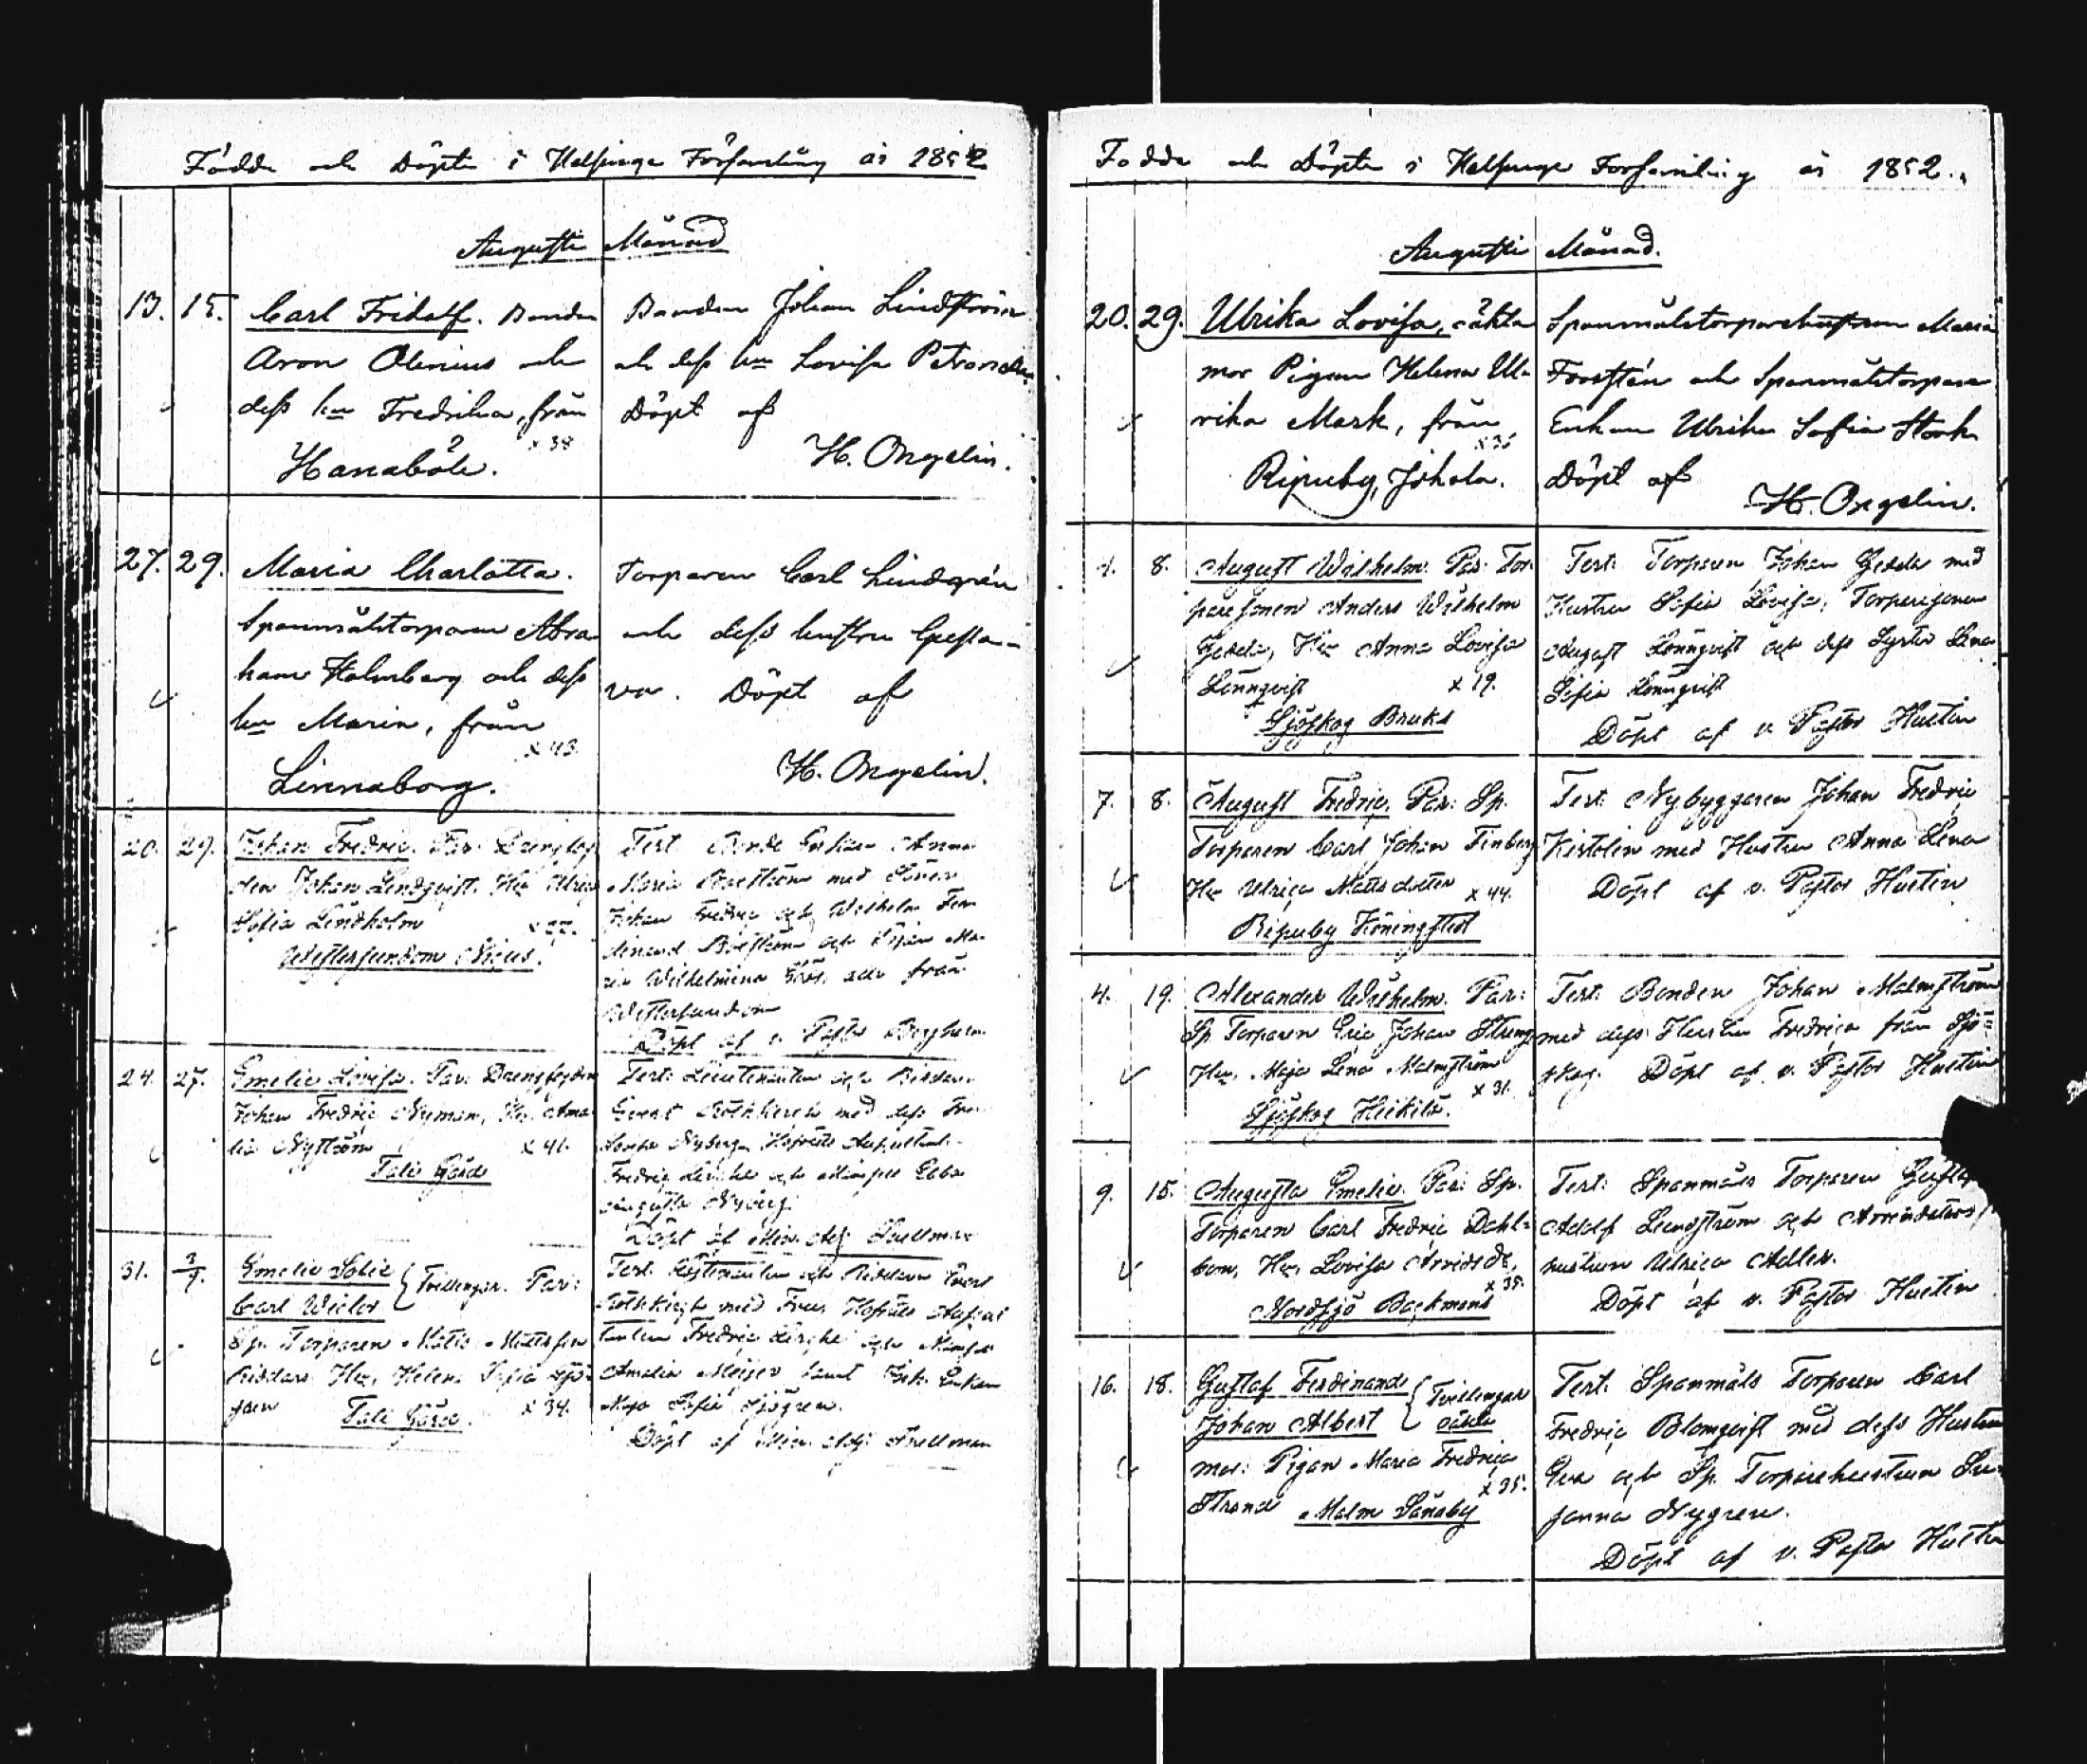 Födde och Döpte i Helsinge Församling år 1852
Augusti Månad
13. 15. Carl Fridolf. Bonden
Aron Olenius och
dess hu Fredrika, från
x 38
Hanaböle.
Bonden Johan Lindström
och dess hu Lovisa Petronella
Döpt af
H. Ongelin.
27. 29. Maria Charlotta.
Spannmålstorparen Abra
ham Holmberg och dess
hu Maria, från
x 43.
Linnaborg.
Torparen Carl Lindgrén
och dess hustru Gusta-
va. Döpt af
H. Ongelin.
20. 29. Johan Fredric. Par:
den Johan Lindqvist. Hu Ulrica
Sofia Lindholm
Westersundom Nicus.
Test. Bonde Enkan Anna
Maria Boström med Sonen
Johan Fredric och Wilhelm Fer
dinand Boström och Pigan Ma-
ria Wilhelmina alla från
Westersundom
Döpt af v. Pastor Bergholm
24. 27. Emelie Lovisa. Par: Drengfogden
Johan Fredric Nyman, Hu. Ama
lia Nyström x 41.
Tali Gård
Test: Lieutenanten och Riddaren
Evert Rothkirch med dess Fru
Nyberg, Hofrätts Auscultant
Fredric Lerche och Mamsell Ebba
Augusta Nyberg.
Döpt af Min. Adj. Snellman
31. 3/9. Emelie Sofie
Carl Victor { Tvillingar. Par:
Sp. Torparen Matts Mattsson
Riddars Hu, Helena Sofia Sjö-
gren x 34.
Tali Gård.
Test. Lieutenanten och Riddaren Evert
Rothkirch med Frun Hofrätts Auscul
tanten Fredric Lerche och Mamsell
Amalia Meijer samt Enkan
Maja Sofia Sjögren.
Döpt af Min. Adj: Snellman
Födde och Döpte i Helsinge Församling år 1852.
Augusti Månad.
20. 29. Ulrika Lovisa, oäkta
mor Pigan Helena Ul-
rika Mark, från
x 35
Ripuby, Johola.
Spannmålstorparehustrun Maria
Forstén och Spannmålstorpare
Enkan Ulrika Sofia Stark
Döpt af
H. Ongelin.
4. 8. August Wilhelm. Par: Tor-
paresonen Anders Wilhelm
Gedda, Hu Anna Lovisa
Lönnqvist x 19.
Sjöskog Bruks
Test: Torparen Johan Gedda med
Hustru Sofia Lovisa, Torparesonen
August Lönnqvist och dess Syster Lena
Sofia Lönnqvist
Döpt af v. Pastor Hustin
7. 8. August Fredric. Par: Sp.
Torparen Carl Johan Finberg
Hu Ulrica Mattsdotter x 44.
Ripuby Köningstedt
Test: Nybyggaren Johan Fredric
Kistolin med Hustru Anna Lena
Döpt af v. Pastor Hustin
4. 19. Alexander Wilhelm. Par:
Sp Torparen Eric Johan Streng
Hu, Maja Lena Malmström
x 31.
Sjöskog Heikilä.
Test: Bonden Johan Malmström
med dess Hustru Fredrica från Sjö-
skog. Döpt af v. Pastor Hustin
9. 15. Augusta Emelie. Par: Sp.
Torparen Carl Fredric Dahl-
bom, Hu, Lovisa Arvidsdr,
x 38.
Nordsjö Backmans
Test: Spanmåls Torparen Gustaf
Adolf Lundström och Arrendators
hustrun Ulrica Adler.
Döpt af v. Pastor Hustin
16. 18. Gustaf Ferdinand
Johan Albert { Tvillingar
oäkta
mor: Pigan Maria Fredrica
Strand x 35.
Malm Sånaby
Test: Spanmåls Torparen Carl
Fredric Blomqvist med dess Hustru
Eva och Sp. Torparehustrun Su-
sanna Nygren.
Döpt af v. Pastor Hustin